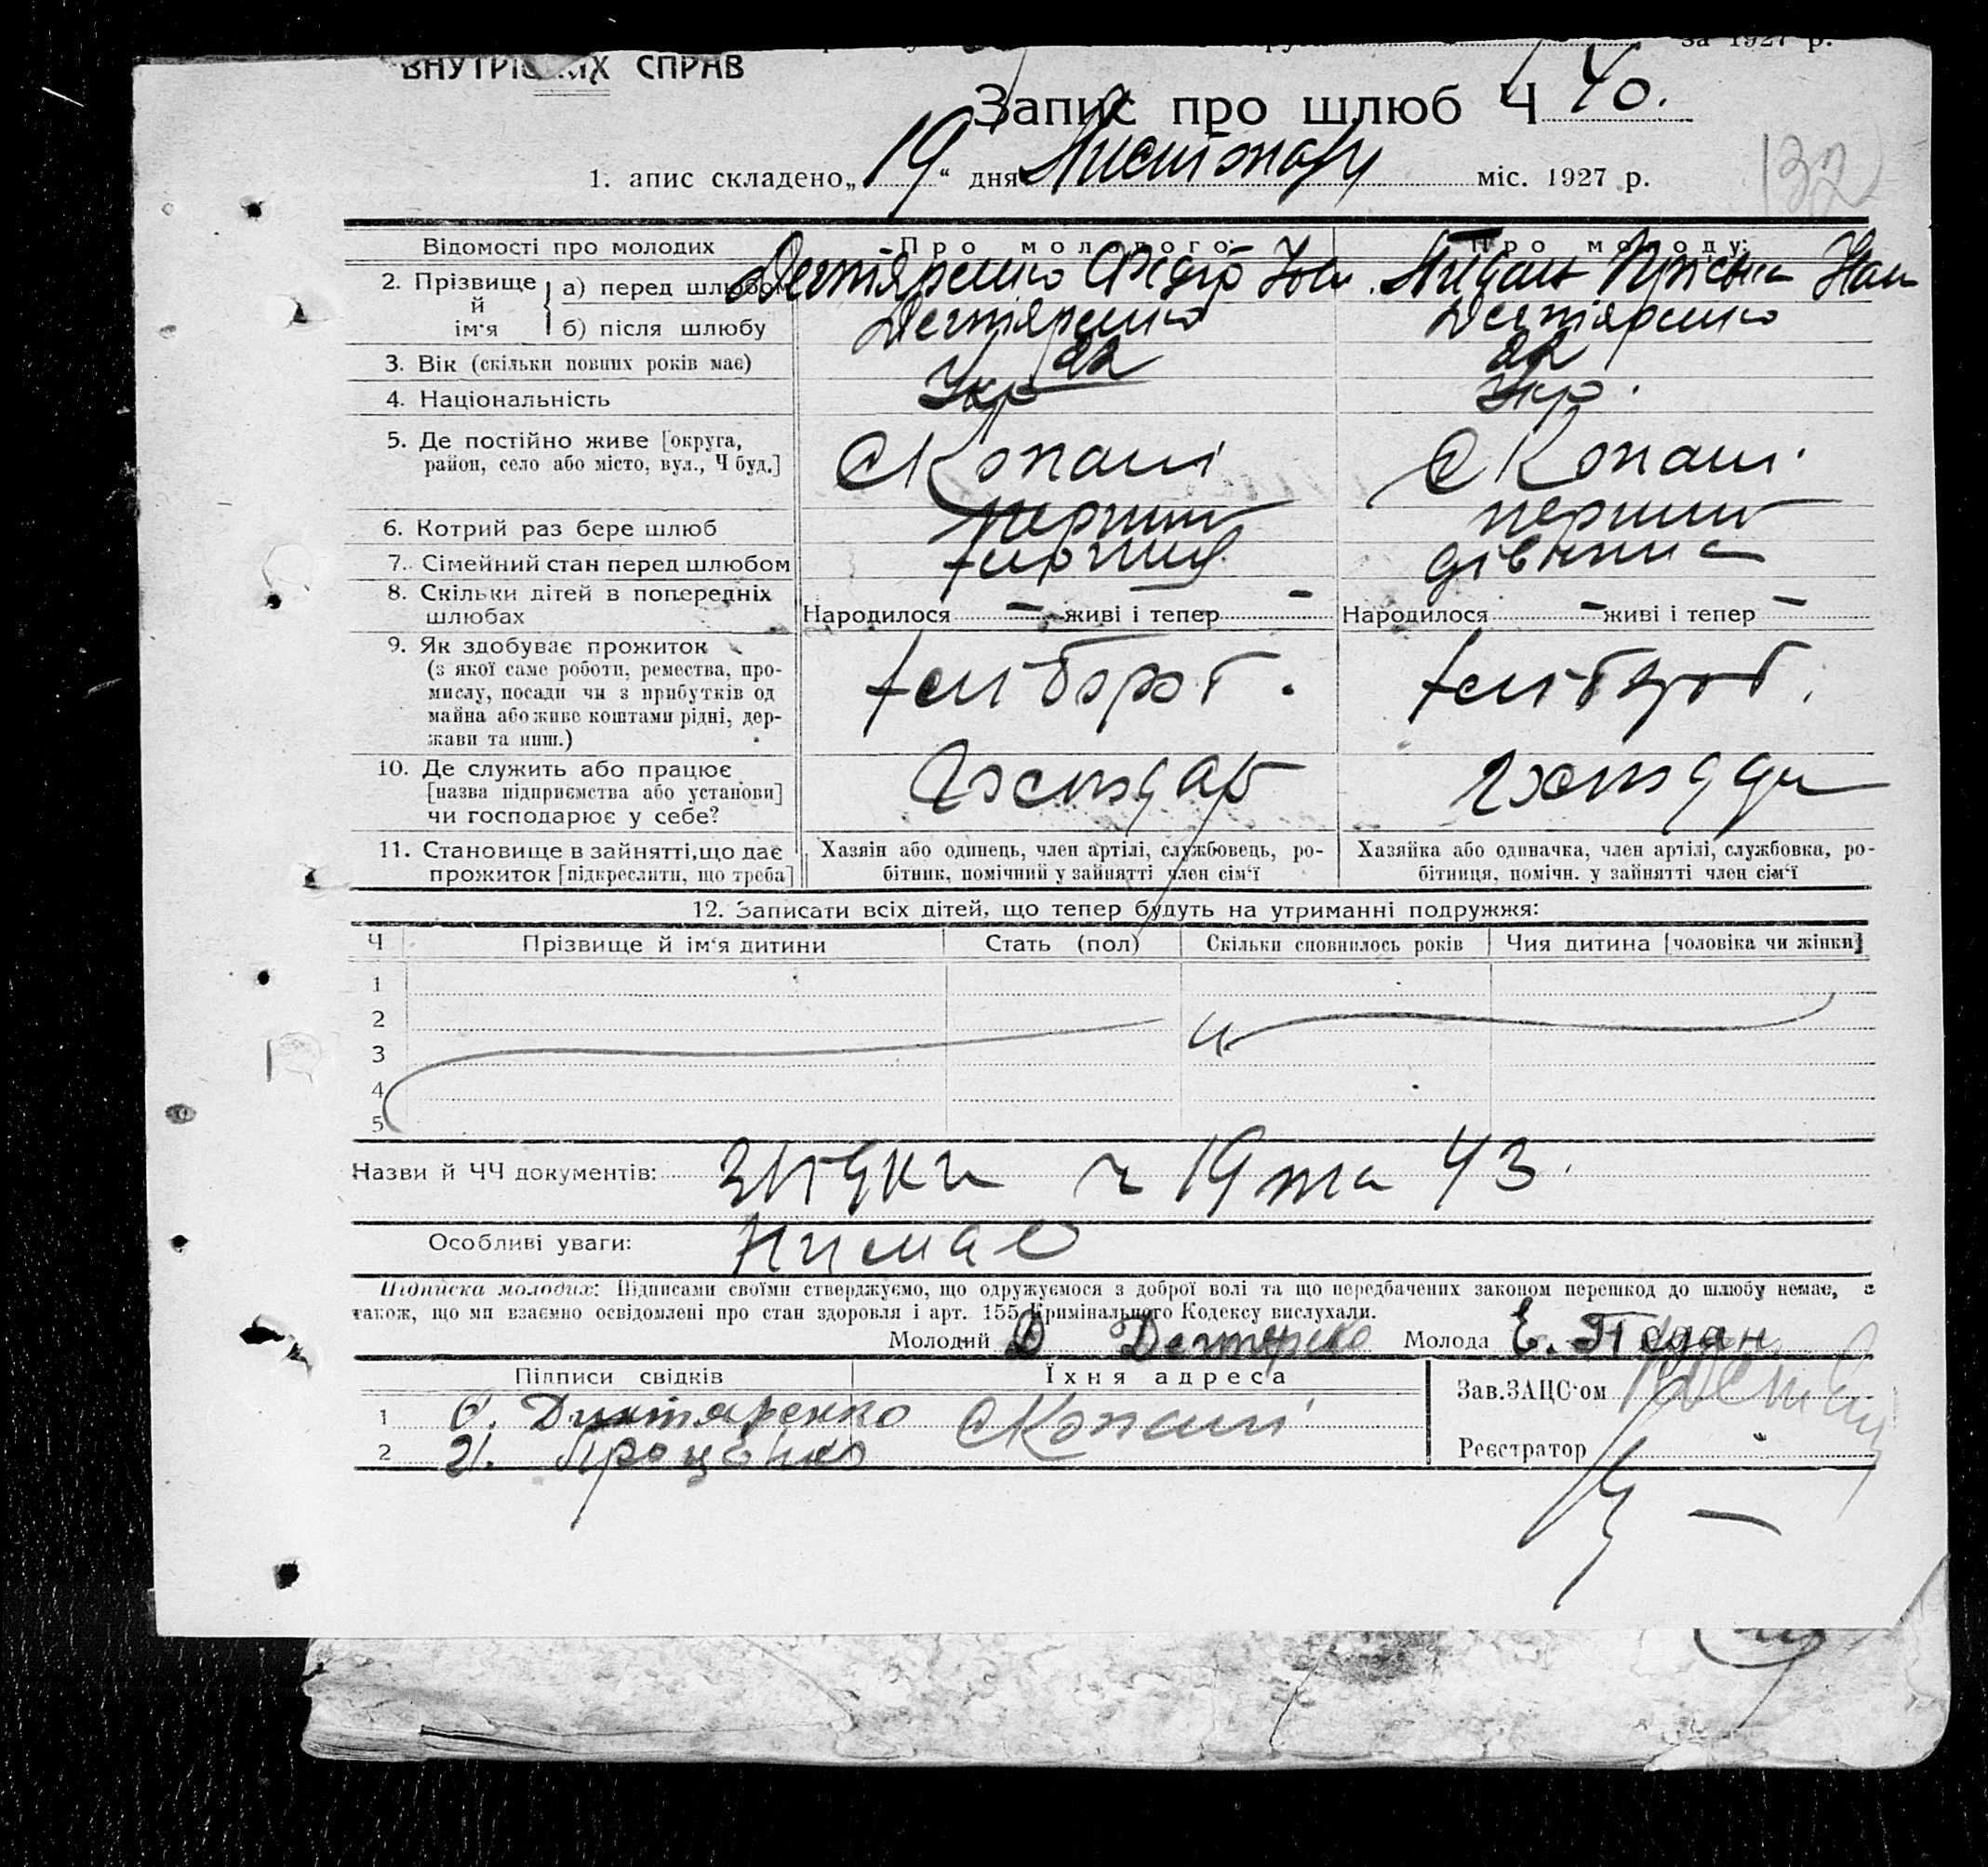 ВНУТРІШНИХ СПРАВ за 1927 р.
Запис про шлюб Ч 40.
132
1. апис складено „19“ дня Листопаду міс. 1927 р.
Відомості про молодих Про молодого: Про молоду:
2. Прізвище й ім'я а) перед шлюбом Дегтяренко Федір
б) після шлюбу Дегтяренко Дегтяренко
3. Вік (скільки повних років має) 22 22
4. Національність Укр Укр.
5. Де постійно живе [округа, район, село або місто, вул., Ч буд.] с Копані с Копані
6. Котрий раз бере шлюб перший перший
7. Сімейний стан перед шлюбом дівчина
8. Скільки дітей в попередніх шлюбах Народилося – живі і тепер – Народилося – живі і тепер –
9. Як здобуває прожиток
(з якої саме роботи, ремества, про-
мислу, посади чи з прибутків од
майна або живе коштами рідні, дер-
жави та инш.) хлібороб. хлібороб.
10. Де служить або працює
[назва підприємства або установи]
чи господарює у себе? Господар
11. Становище в зайнятті, що дає прожиток [підкреслити, що треба]
Хазяін або одинець, член артілі, службовець, ро-
бітник, помічний у зайнятті член сім'ї
Хазяйка або одиначка, член артілі, службовка, ро-
бітниця, помічн. у зайнятті член сім'ї
12. Записати всіх дітей, що тепер будуть на утриманні подружжя:
Ч Прізвище й ім'я дитини Стать (пол) Скільки сповнилось років Чия дитина [чоловіка чи жінки]
1
2
3
4
5
Назви й ЧЧ документів: ч 19 та 43.
Особливі уваги: Нимає
Підписка молодих: Підписами своїми стверджуємо, що одружуємося з доброї волі та що передбачених законом перешкод до шлюбу немає, а
також, що ми взаємно освідомлені про стан здоровля і арт. 155 Кримінального Кодексу вислухали.
Молодий Молода Е. Педан
Підписи свідків Їхня адреса Зав.ЗАЦС'ом
1 с Копані
2 Проценко Реєстратор